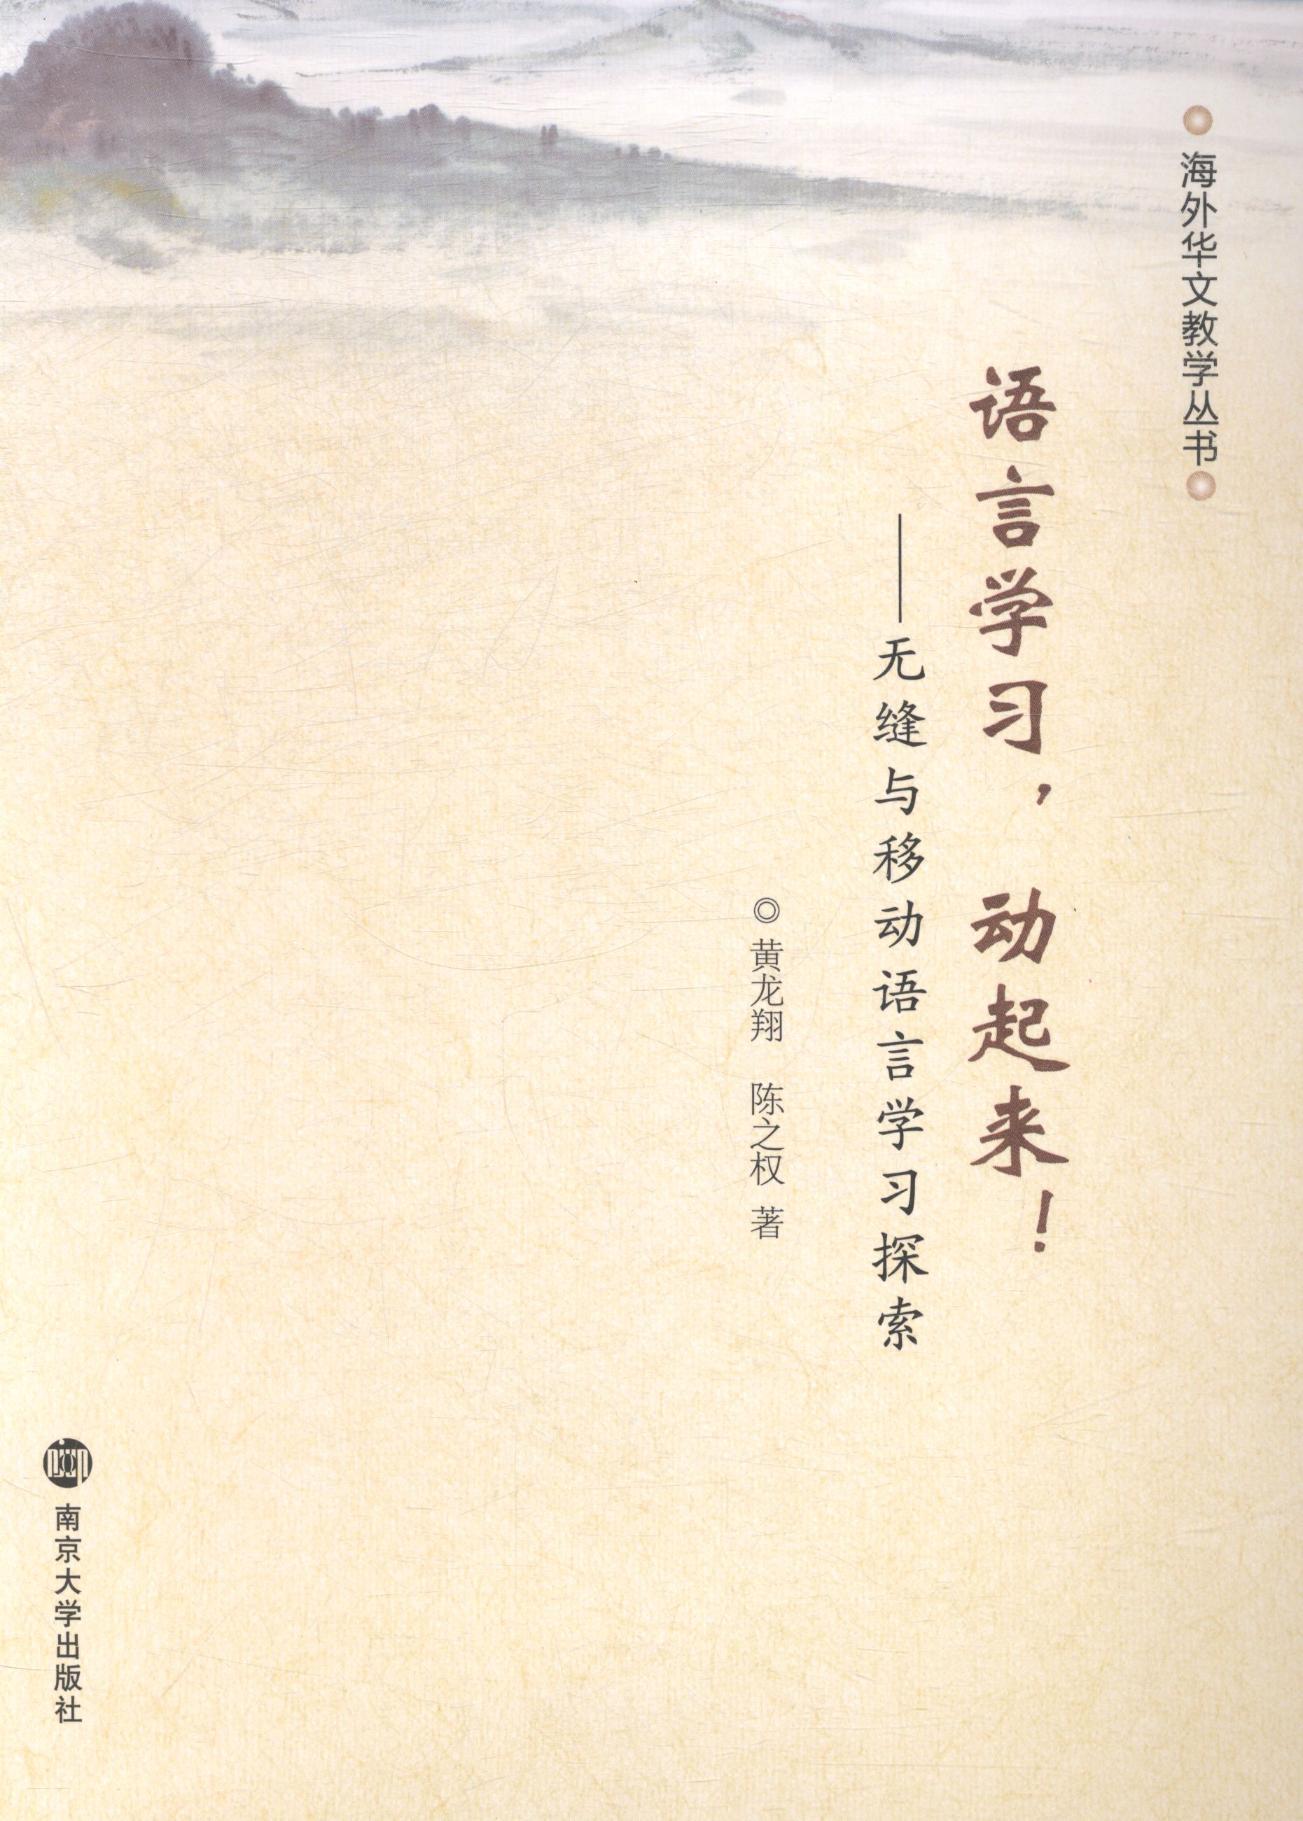 海外华文教学丛书
语言学习，动起来！
——无缝与移动语言学习探索
◎黄龙翔 陈之权 著
南京大学出版社